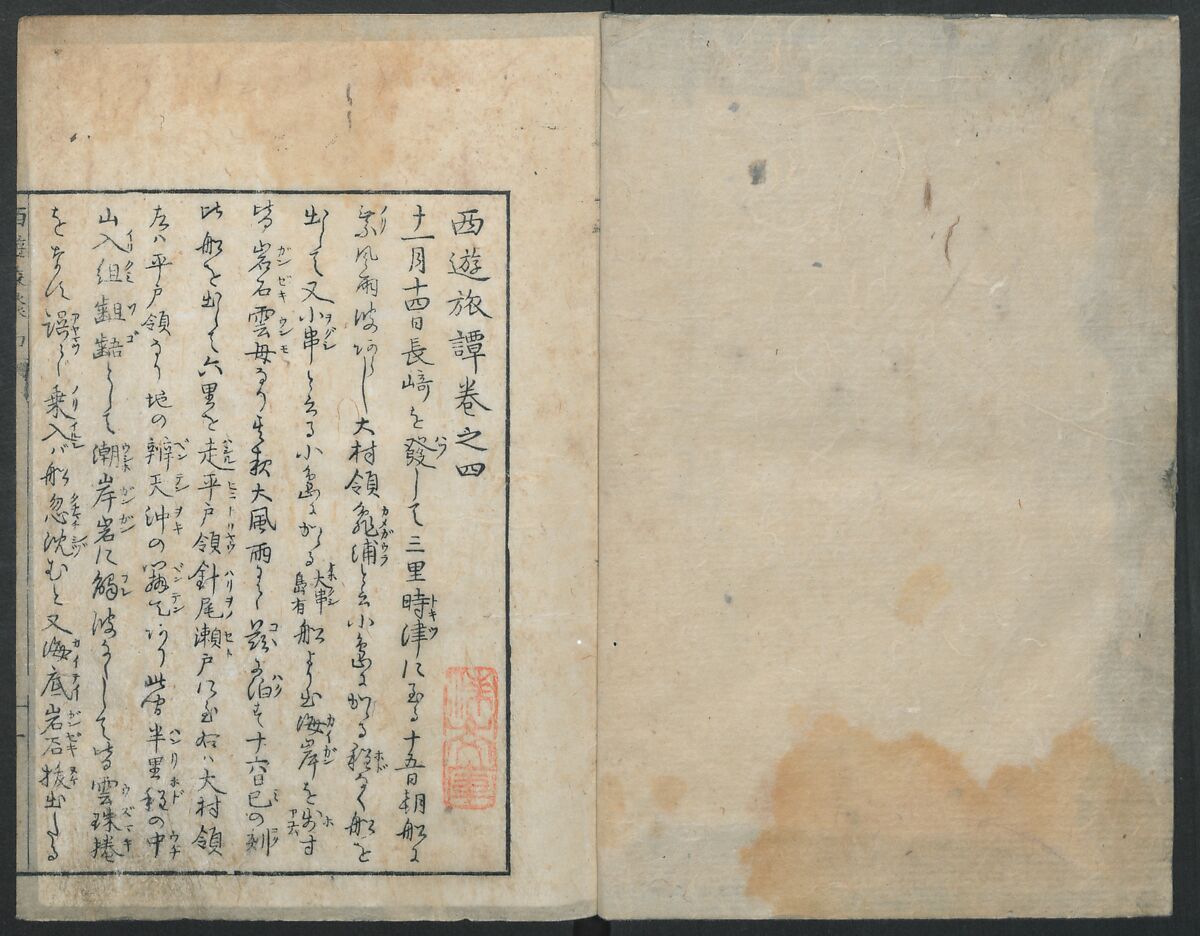 西遊旅譚卷之四
十一月十四日長﨑を發して三里時津に至る十五日朝船に
乗風雨波あらし大村領龜浦と云小島にかゝる程なく船を
出して又小串と云る小島にかゝる大串島有船より出海岸を歩す
皆岩石雲母なり其夜大風雨にて茲に泊す十六日巳の刻
此船を出して六里を走平戸領針尾瀬戸に至右ハ大村領
左ハ平戸領なり地の辨天沖の辨天あり此間半里程の中
山入組齟齬として潮岸岩に觸波なして皆雲珠捲
をなす誤て乗入バ船忽沈むと又海底岩石抜出たる